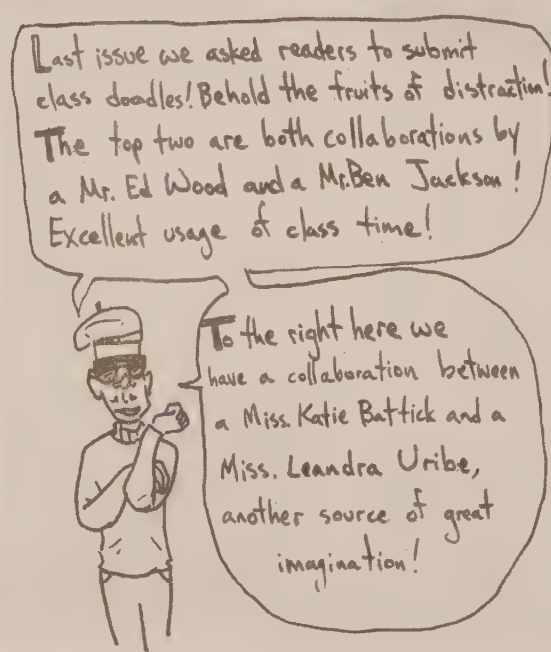 Last issue we asked readers to submit
class doodles! Behold the fruits of distraction!
The top two are both collaborations by
a Mr. Ed Wood and a Mr. Ben Jackson!
Excellent usage of class time!
To the right here we
have a collaboration between
a Miss. Katie Battick and a
Miss. Leandra Uribe,
another source of great
imagination!